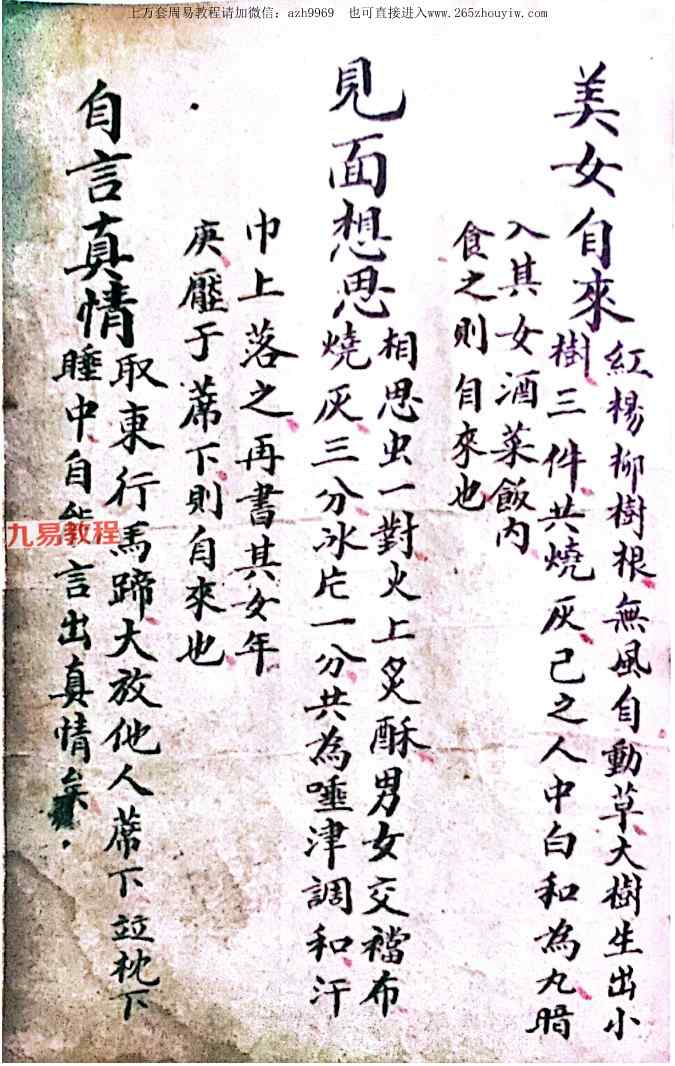 上万套周易教程请加微信：azh9969 也可直接进入www.265zhouyiw.com
美女自來
紅楊柳樹根無風自動草大樹生出小
樹三件共燒灰己之人中白和為九暗
入其女酒菜飯内
食之則自來也
見面想思
相思虫一對火上炙酥男女交襠布
燒灰三分冰片一分共為唾津調和汗
巾上落之再書其女年
庚壓于蓆下則自來也
自言真情
取東行馬蹄大放他人蓆下並枕下
睡中自能言出真情矣
九易教程